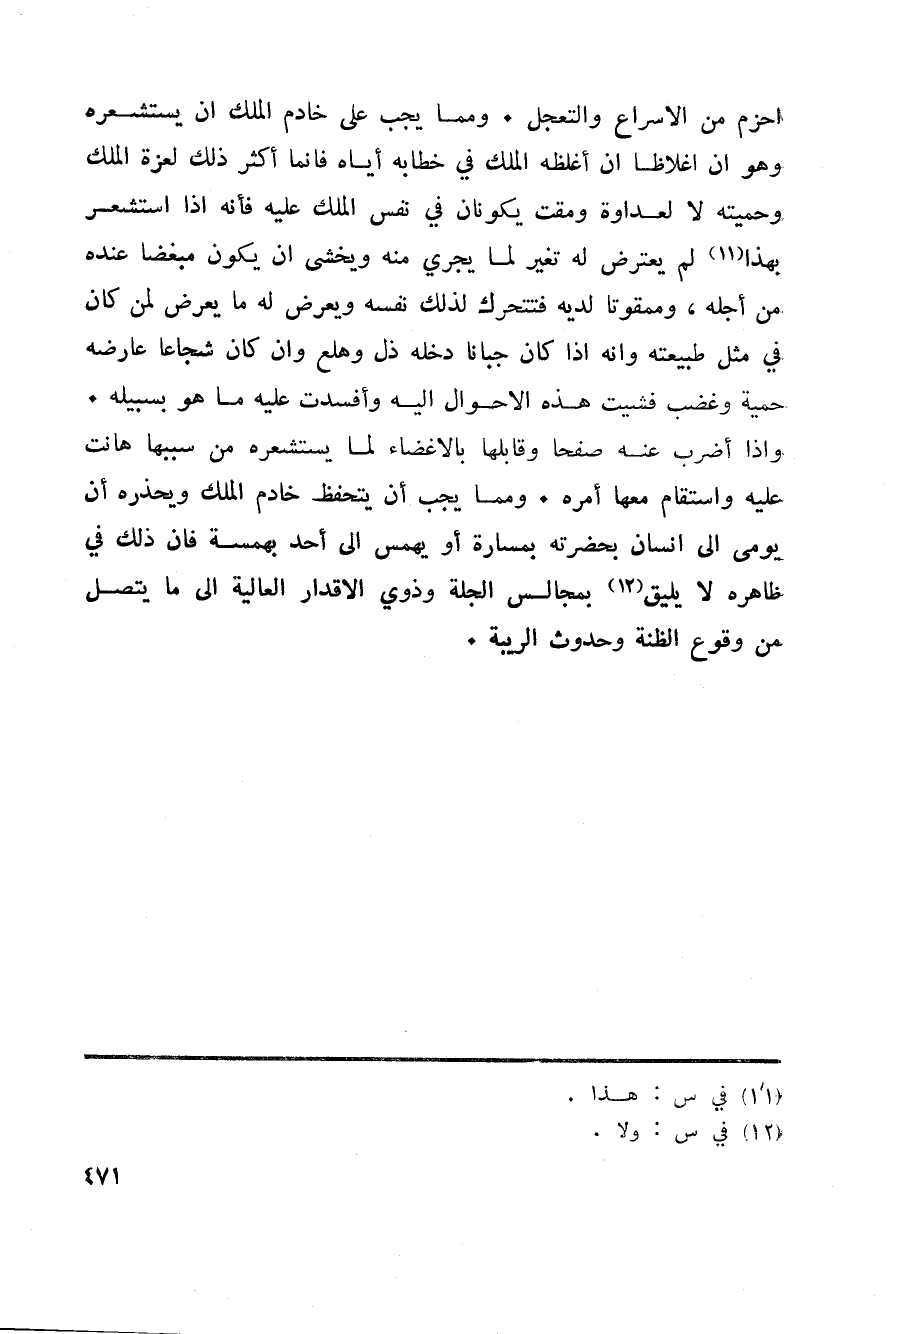 احزم من الاسراع والتعجل • ومما يجب على خادم الملك ان يستشعره
وهو ان اغلاظا ان أغلظه الملك في خطابه أياه فانما أكثر ذلك لعزة الملك
وحميته لا لعداوة ومقت يكونان في نفس الملك عليه فأنه اذا استشعر
بهذا(١١) لم يعترض له تغير لما يجري منه ويخشى ان يكون مبغضا عنده
من أجله ، وممقوتا لديه فتتحرك لذلك نفسه ويعرض له ما يعرض لمن كان
في مثل طبيعته وانه اذا كان جبانا دخله ذل وهلع وان كان شجاعا عارضه
حمية وغضب فشيت هذه الاحوال اليه وأفسدت عليه ما هو بسبيله •
واذا أضرب عنه صفحا وقابلها بالاغضاء لما يستشعره من سببها هانت
عليه واستقام معها أمره • ومما يجب أن يتحفظ خادم الملك ويحذره أن
يومى الى انسان بحضرته بمسارة أو يهمس الى أحد بهمسة فان ذلك في
ظاهره لا يليق(١٢) بمجالس الجلة وذوي الاقدار العالية الى ما يتصل
من وقوع الظنة وحدوث الريبة •
(١١) في س : هذا .
(١٢) في س : ولا .
٤٧١